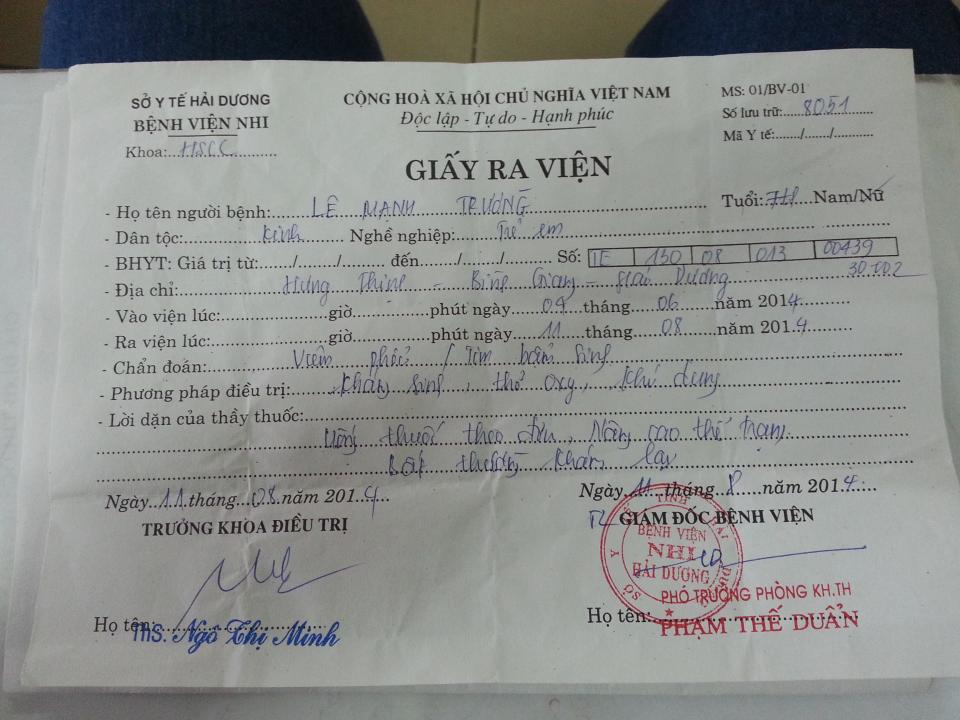 SỞ Y TẾ HẢI DƯƠNG
BỆNH VIỆN NHI
Khoa:...HSCC...........
CỘNG HOÀ XÃ HỘI CHỦ NGHĨA VIỆT NAM
Độc lập - Tự do - Hạnh phúc
MS: 01/BV-01
Số lưu trữ:...8051......
Mã Y tế:....../....../...........
GIẤY RA VIỆN
- Họ tên người bệnh:.......LÊ MẠNH TRƯỜNG....... Tuổi:.......Nam/Nữ
- Dân tộc:......Kinh...... Nghề nghiệp:......Trẻ em......
- BHYT: Giá trị từ:....../....../....... đến....../....../....... Số: TE 130 08 013 00439
30.002
- Địa chỉ:......Hưng Thịnh - Bình Giang - Hải Dương
- Vào viện lúc:..................giờ.............phút ngày...09...tháng...06...năm 2014
- Ra viện lúc:..................giờ.............phút ngày...11...tháng...08...năm 2014
- Chẩn đoán:......Viêm phổi / Tim bẩm sinh
- Phương pháp điều trị:......Kháng sinh, thở oxy, khí dung
- Lời dặn của thầy thuốc:......
Uống thuốc theo đơn, Nâng cao thể trạng
thường khám lại
Ngày...11...tháng...08...năm 2014...
TRƯỞNG KHOA ĐIỀU TRỊ
Họ tên:......
ThS. Ngô Thị Minh
Ngày...11...tháng...8...năm 2014...
TL GIÁM ĐỐC BỆNH VIỆN
BỆNH VIỆN
NHI
HẢI DƯƠNG
PHÓ TRƯỞNG PHÒNG KH.TH
Họ tên:
PHẠM THẾ DUẨN